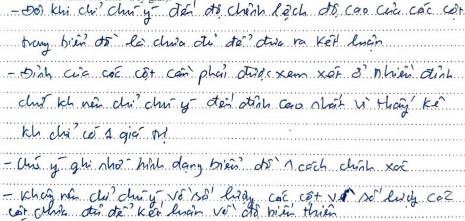 - Đôi khi chỉ chú ý đến độ chênh lệch độ cao của các cột
trong biểu đồ là chưa đủ để đưa ra kết luận
- Đỉnh của các cột cần phải được xem xét ở nhiều đỉnh
chứ kh nên chỉ chú ý đến đỉnh cao nhất vì thống kê
kh chỉ có 1 giá trị
- Chú ý ghi nhớ hình dạng biểu đồ 1 cách chính xác
- Không nên chỉ chú ý về số lượng các cột vì số lượng các
cột chưa đủ để kết luận về độ biến thiên